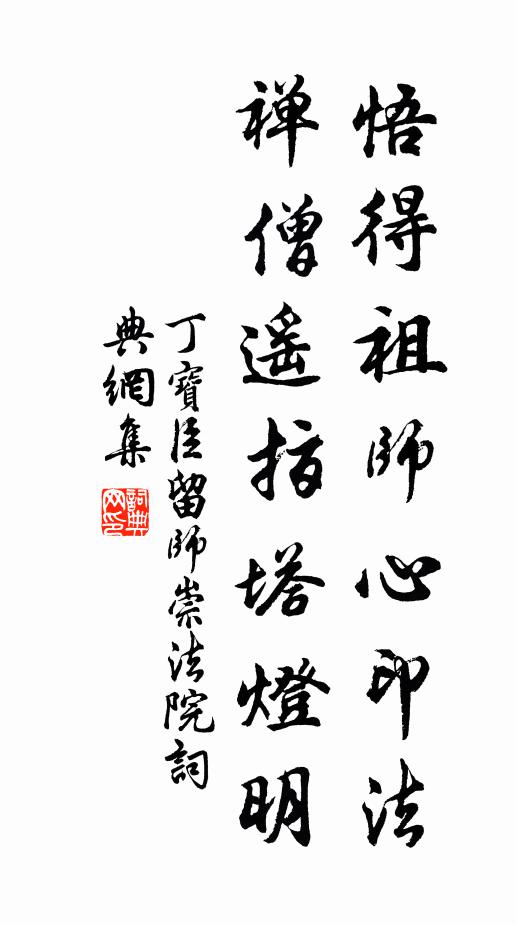 悟得祖師心印法
禪僧遥指塔燈明
丁寶臣留師崇法院詞
典網集
詞典網印